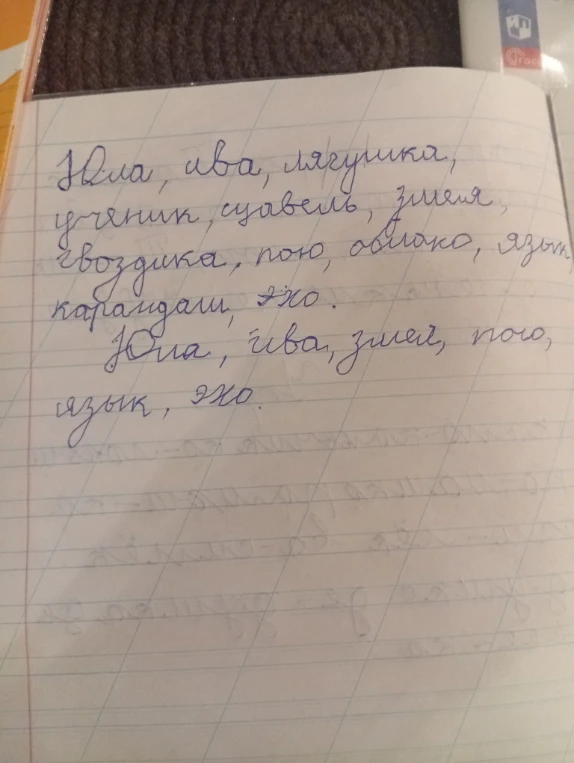 Юла, ива, лягушка,
ученик, щавель, змея,
гвоздика, пою, облако, язык,
карандаш, эхо.
Юла, ива, змея, пою,
язык, эхо.